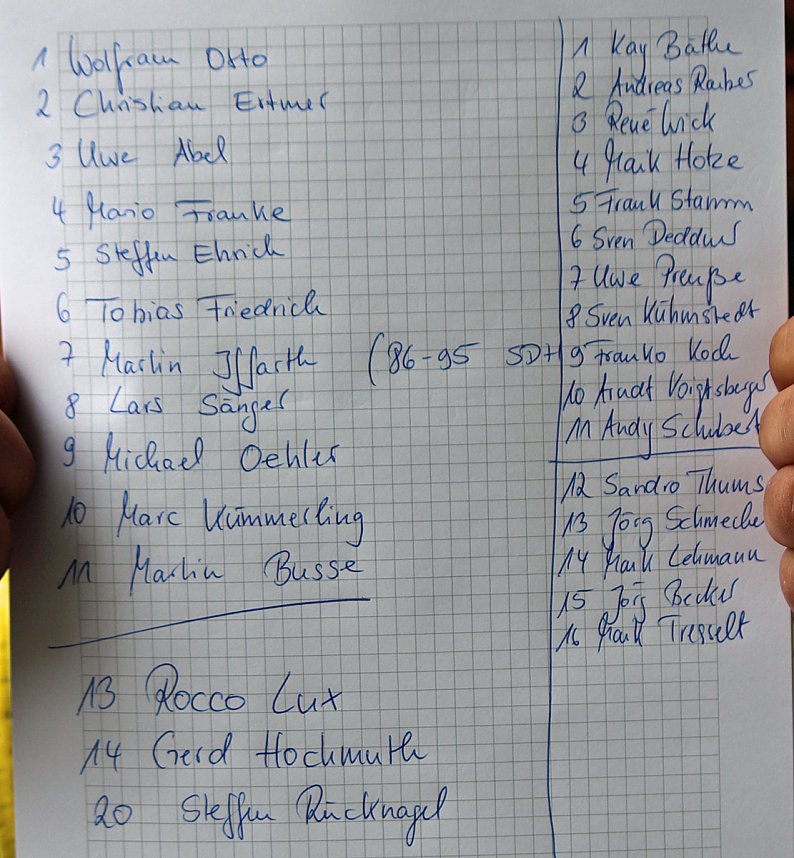 1 Wolfram Otto
2 Christian Ertmer
3 Uwe Abel
4 Mario Franke
5 Steffen Ehrich
6 Tobias Friedrich
7 Martin Iffarth (86-95 SDH
8 Lars Sänger
9 Michael Oehler
10 Marc Kümmerling
11 Martin Busse
13 Rocco Lux
14 Gerd Hochmuth
20 Steffen Rücknagel
1 Kay Bäthe
2 Andreas Raiber
3 René Wick
4 Maik Hotze
5 Frank Stamm
6 Sven Deddus
7 Uwe Preuße
8 Sven Kühmstedt
9 Franko Koch
10 Arndt Voigtsberger
11 Andy Schubert
12 Sandro Thums
13 Jörg Schmeche
14 Maik Lehmann
15 Jörg Becker
16 Maik Tresselt